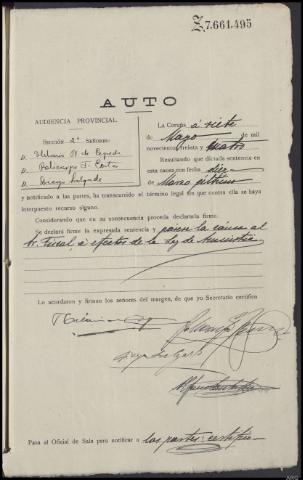 Z 7.661.495
AUTO
AUDIENCIA PROVINCIAL
SECCIÓN 2ª SEÑORES:
D.
D. Policarpo F. Costas
D.
La Coruña á siete
de Mayo de mil
novecientos treinta y cuatro
Resultando que dictada sentencia en
esta causa con fecha diez
de Marzo último
y notificado a las partes, ha transcurrido el término legal sin que contra ella se haya
interpuesto recurso alguno.
Considerando que en su consecuencia procede declararla firme.
Se declara firme la expresada sentencia y pase la causa al
Sr. Fiscal, á efectos de la Ley de Amnistía
Lo acordaron y firman los señores del margen, de que yo Secretario certifico
Pasa al Oficial de Sala para notificar a las partes: certifico